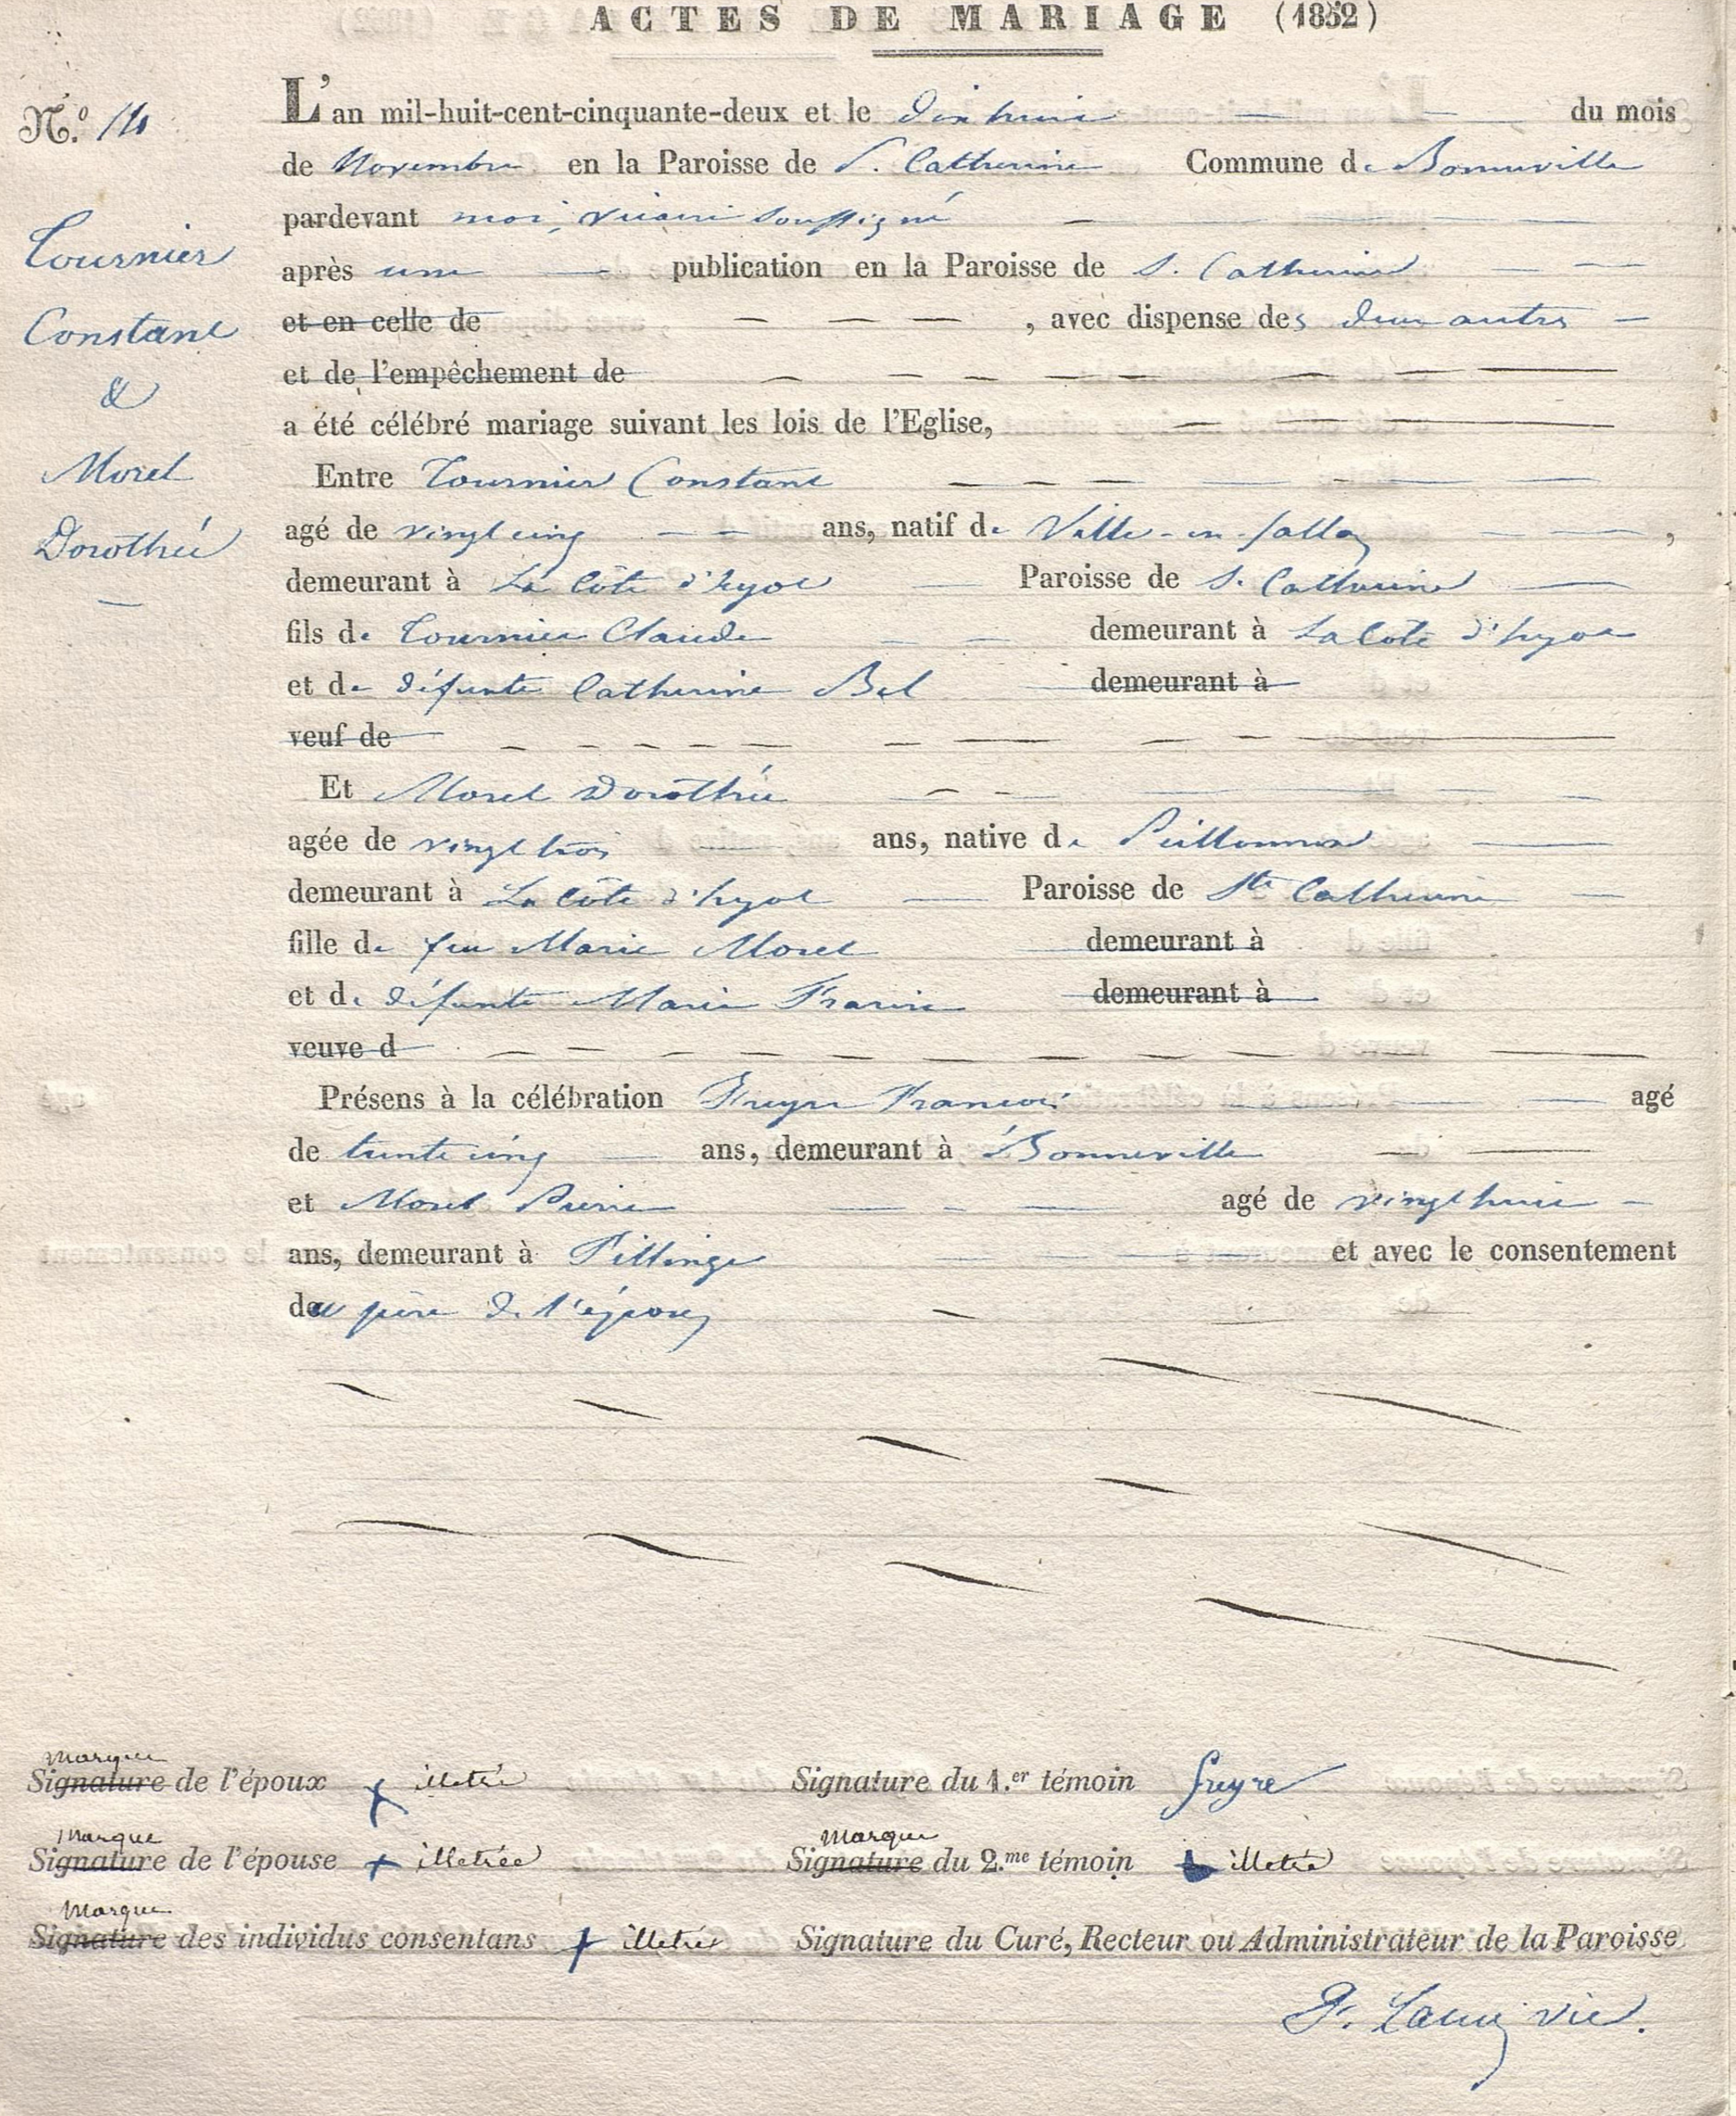 ACTES DE MARIAGE (1852)
N.º 14
L'an mil-huit-cent-cinquante-deux et le dix huit du mois
de Novembre en la Paroisse de S. Catherine Commune de Bonneville
pardevant moi, vicaire soussigné
Tournier
Constant
&
Morel
Dorothée
après une publication en la Paroisse de S. Catherine
et en celle de , avec dispense des deux autres
et de l'empêchement de
a été célébré mariage suivant les lois de l'Eglise,
Entre Tournier Constant
agé de vingt cinq ans, natif de Ville-en-Sallaz,
demeurant à La Côte d'hyot Paroisse de S. Catherine
fils de Tournier Claude demeurant à La Côte d'hyot
et de défunte Catherine Bel demeurant à
veuf de
Et Morel Dorothée
agée de vingt trois ans, native de
demeurant à La Côte d'hyot Paroisse de Ste Catherine
fille de feu Marie Morel demeurant à
et de défunte Marie demeurant à
veuve d
Présens à la célébration Freyre Francois agé
de trente cinq ans, demeurant à Bonneville
et Morel Pierre agé de vingt huit
ans, demeurant à Fillinge et avec le consentement
du père de l'époux
Marque
Signature de l'époux illetré Signature du 1.er témoin freyre
Marque Marque
Signature de l'épouse illetrée Signature du 2.me témoin illetré
Marque
Signature des individus consentans illetré Signature du Curé, Recteur ou Administrateur de la Paroisse
vic.